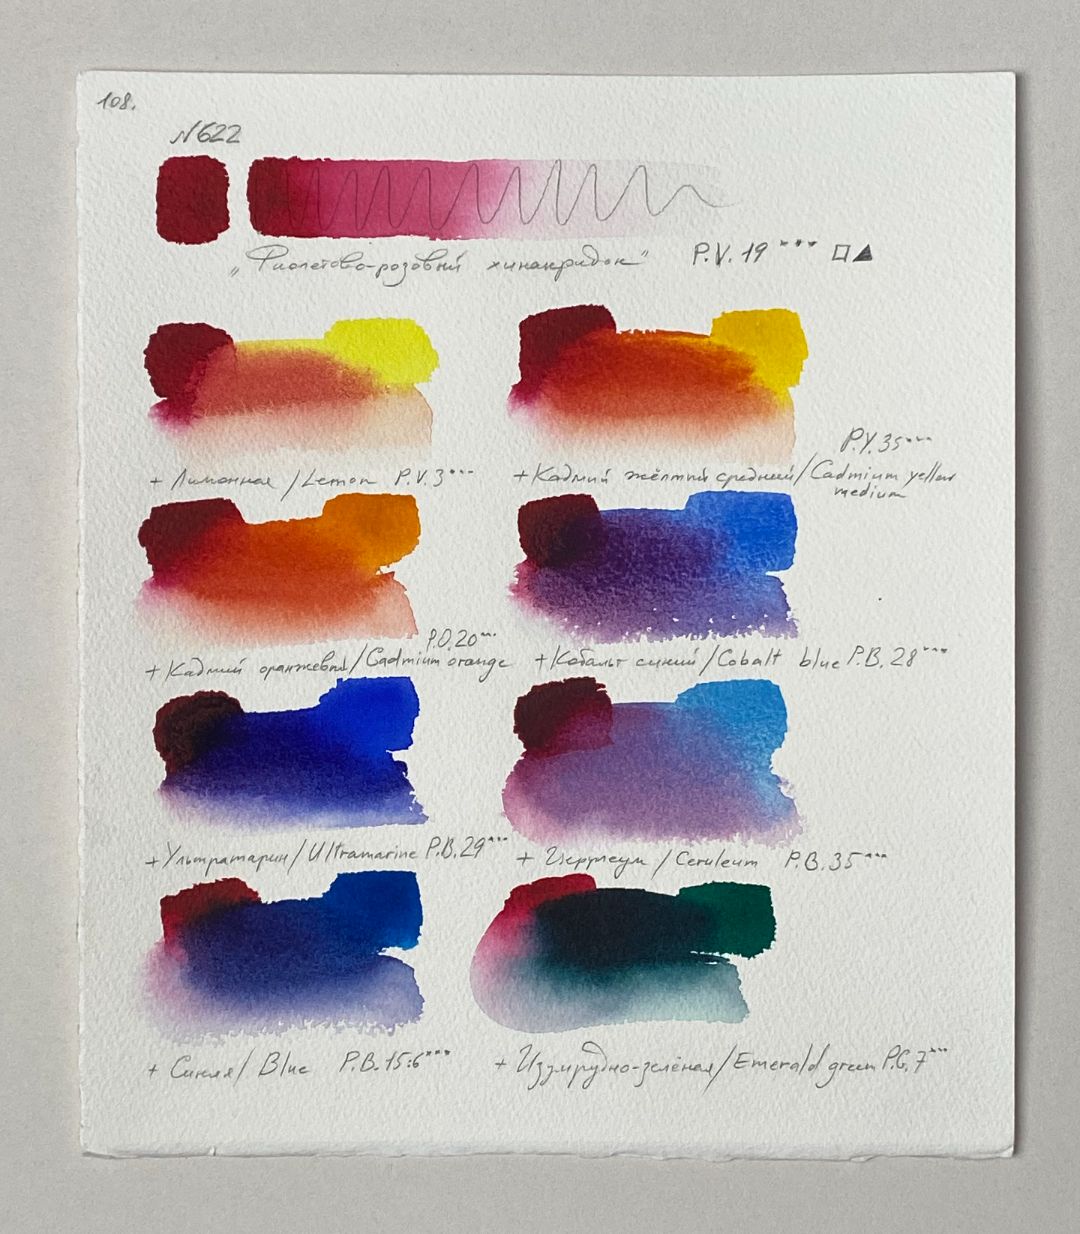 108.
N622
„Фиолетово-розовый хинакридон" P.V.19***
+ Лимонная / Lemon P.V.3***
P.Y.35***
+ Кадмий жёлтый средний / Cadmium yellow
medium
P.O.20***
+ Кадмий оранжевый / Cadmium orange
+ Кобальт синий / Cobalt blue P.B.28***
+ Ультрамарин / Ultramarine P.B.29***
+ Церулеум / Ceruleum P.B.35***
+ Синяя / Blue P.B.15:6***
+ Изумрудно-зелёная / Emerald green P.G.7***